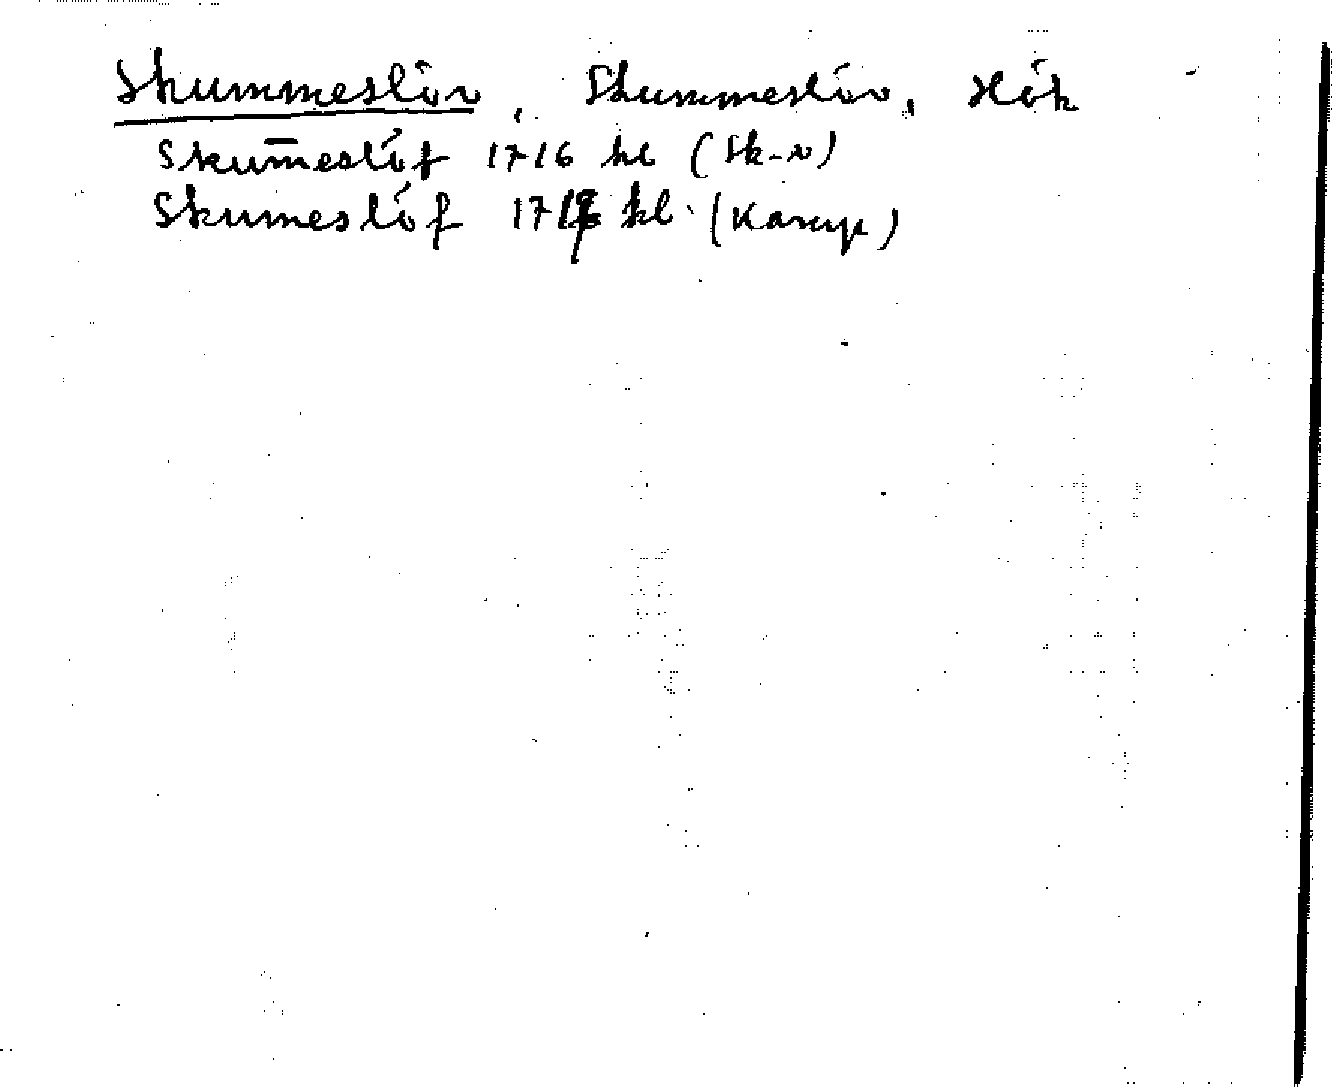 Skummeslöv, Skummeslöv, Hök
Skum̄eslöf 1716 kl (Sk-v)
Skumeslöf kl. (Karup)